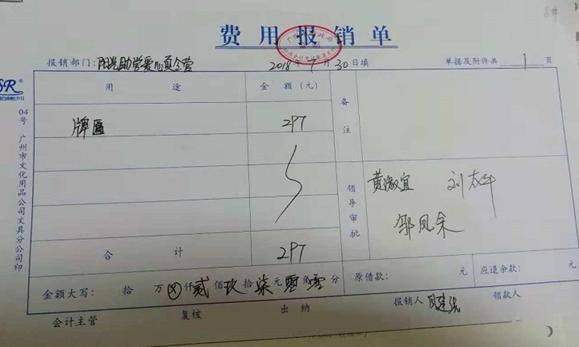 费用报销单
报销部门：阳光助学爱心夏令营 2018年7月30日填 单据及附件共1页
用途 金额（元） 备注
牌匾 297
领导审批 黄淑宜
合计 297
金额大写： 拾 万 ⊗仟贰佰玖拾柒元零角零分 原借款： 元 应退余款： 元
会计主管 复核 出纳 报销人 领款人
04号 广州市文化用品公司文具分公司印